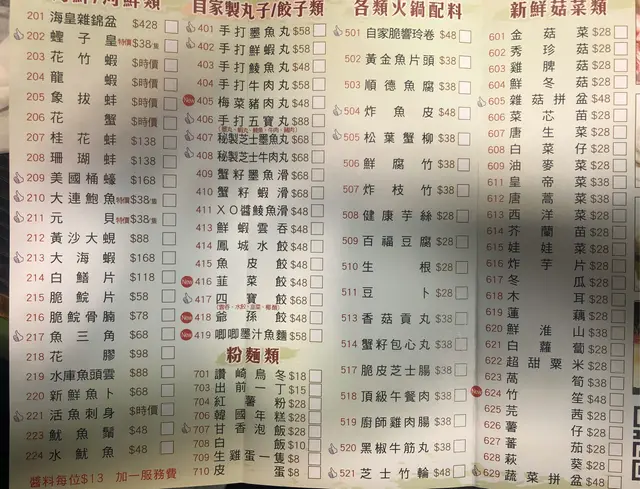 海鮮類
201 海皇雜錦盆 $428
202 蟶子皇 特價$38/隻
203 花竹蝦 $時價
204 龍蝦 $時價
205 象拔蚌 $時價
206 花蟹 $時價
207 桂花蚌 $138
208 珊瑚蚌 $138
209 美國桶蠔 $168
210 大連鮑魚 特價$38/隻
211 元貝 特價$38/隻
212 黃沙大蜆 $88
213 大海蝦 $168
214 白鱔片 $118
215 脆鯇片 $58
216 脆鯇骨腩 $78
217 魚三角 $68
218 花膠 $98
219 水庫魚頭雲 $88
220 新鮮魚卜 $68
221 活魚刺身 $時價
223 魷魚鬚 $48
224 水魷魚 $48
醬料每位$13 加一服務費
自家製丸子/餃子類
401 手打墨魚丸 $58
402 手打蝦丸 $58
403 手打鯪魚丸 $48
404 手打牛肉丸 $58
New 405 梅菜豬肉丸 $48
406 手打五寶丸 $88
407 秘製芝士墨魚丸 $68
408 秘製芝士牛肉丸 $68
409 蟹籽墨魚滑 $68
410 蟹籽蝦滑 $68
411 XO醬鯪魚滑 $48
413 鮮蝦雲吞 $48
414 鳳城水餃 $48
415 魚皮餃 $48
New 416 韮菜餃 $48
417 四寶餃 $68
New 418 爺孫餃 $48
New 419 唧唧墨汁魚麵 $58
粉麵類
701 讚崎烏冬 $18
703 出前一丁 $15
704 紅薯粉 $28
706 韓國年糕 $28
707 甘香泡飯 $28
708 白飯 $10
709 生雞蛋一隻 $8
710 皮蛋 $8
各類火鍋配料
501 自家脆響玲卷 $48
502 黃金魚片頭 $38
503 順德魚腐 $38
504 炸魚皮 $48
505 松葉蟹柳 $38
506 鮮腐竹 $38
507 炸枝竹 $38
508 健康芋絲 $28
509 百福豆腐 $28
510 生根 $28
511 豆卜 $28
513 香菇貢丸 $38
514 蟹籽包心丸 $38
517 脆皮芝士腸 $38
518 頂級午餐肉 $38
519 廚師雞肉腸 $38
520 黑椒牛筋丸 $38
521 芝士竹輪 $48
新鮮菇菜類
601 金菇菜 $28
602 秀珍菇 $28
603 雞脾菇 $28
604 鮮冬菇 $28
605 雜菇拼盆 $48
606 菜芯苗 $28
607 唐生菜 $28
608 白菜仔 $28
609 油麥菜 $28
611 皇帝菜 $38
612 唐蒿 $38
613 西洋菜 $28
614 芥蘭苗 $28
615 娃娃菜 $28
616 炸芋片 $28
617 冬瓜 $28
618 木耳 $28
619 蓮藕 $28
620 鮮淮山 $38
621 白蘿蔔 $28
622 超甜粟米 $28
623 萵筍 $38
New 624 竹笙 $48
625 芫茜 $28
626 薯仔 $28
627 蕃茄 $28
628 秋葵 $28
629 蔬菜拼盆 $48